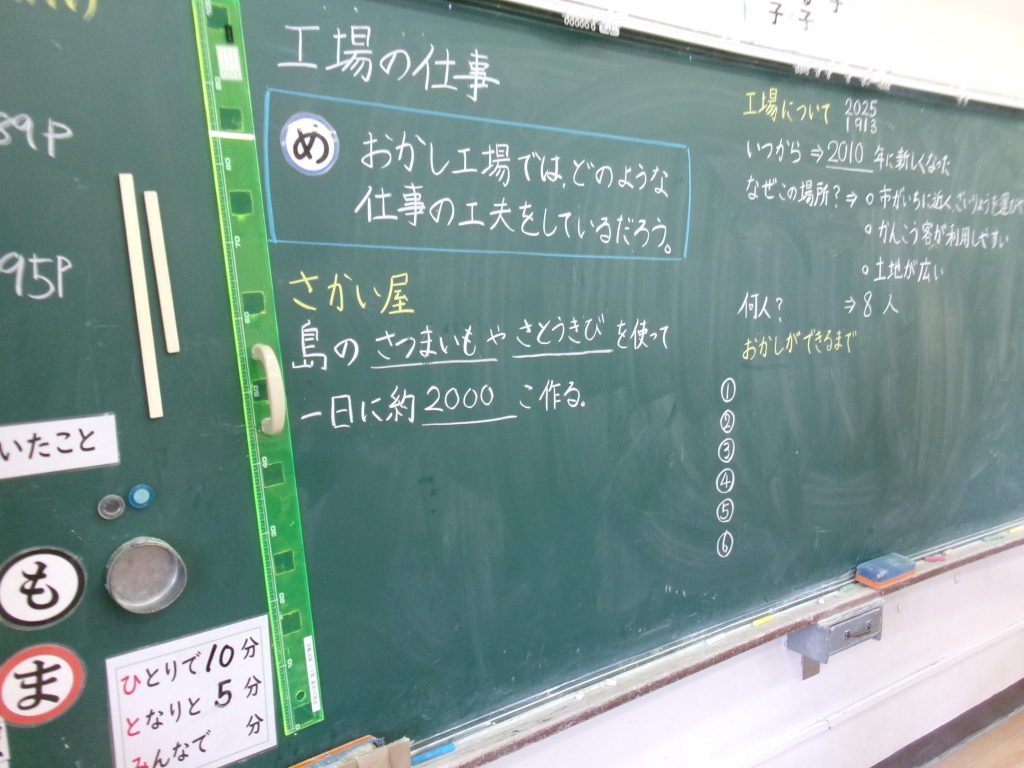 89P
95P
いたこと
も
ま
ひとりで10分
となりと5分
みんなで 分
工場の仕事
め
おかし工場では、どのような
仕事の工夫をしているだろう。
さかい屋
島の さつまいも や さとうきび を使って
一日に約 2000 こ作る。
工場について 2025
1913
いつから ⇒ 2010 年に新しくなった
なぜこの場所? ⇒ ○ 市がいちに近く、ざいりょうを運び
○ かんこう客が利用しやすい
○ 土地が広い
何人? ⇒ 8 人
おかしができるまで
①
②
③
④
⑤
⑥